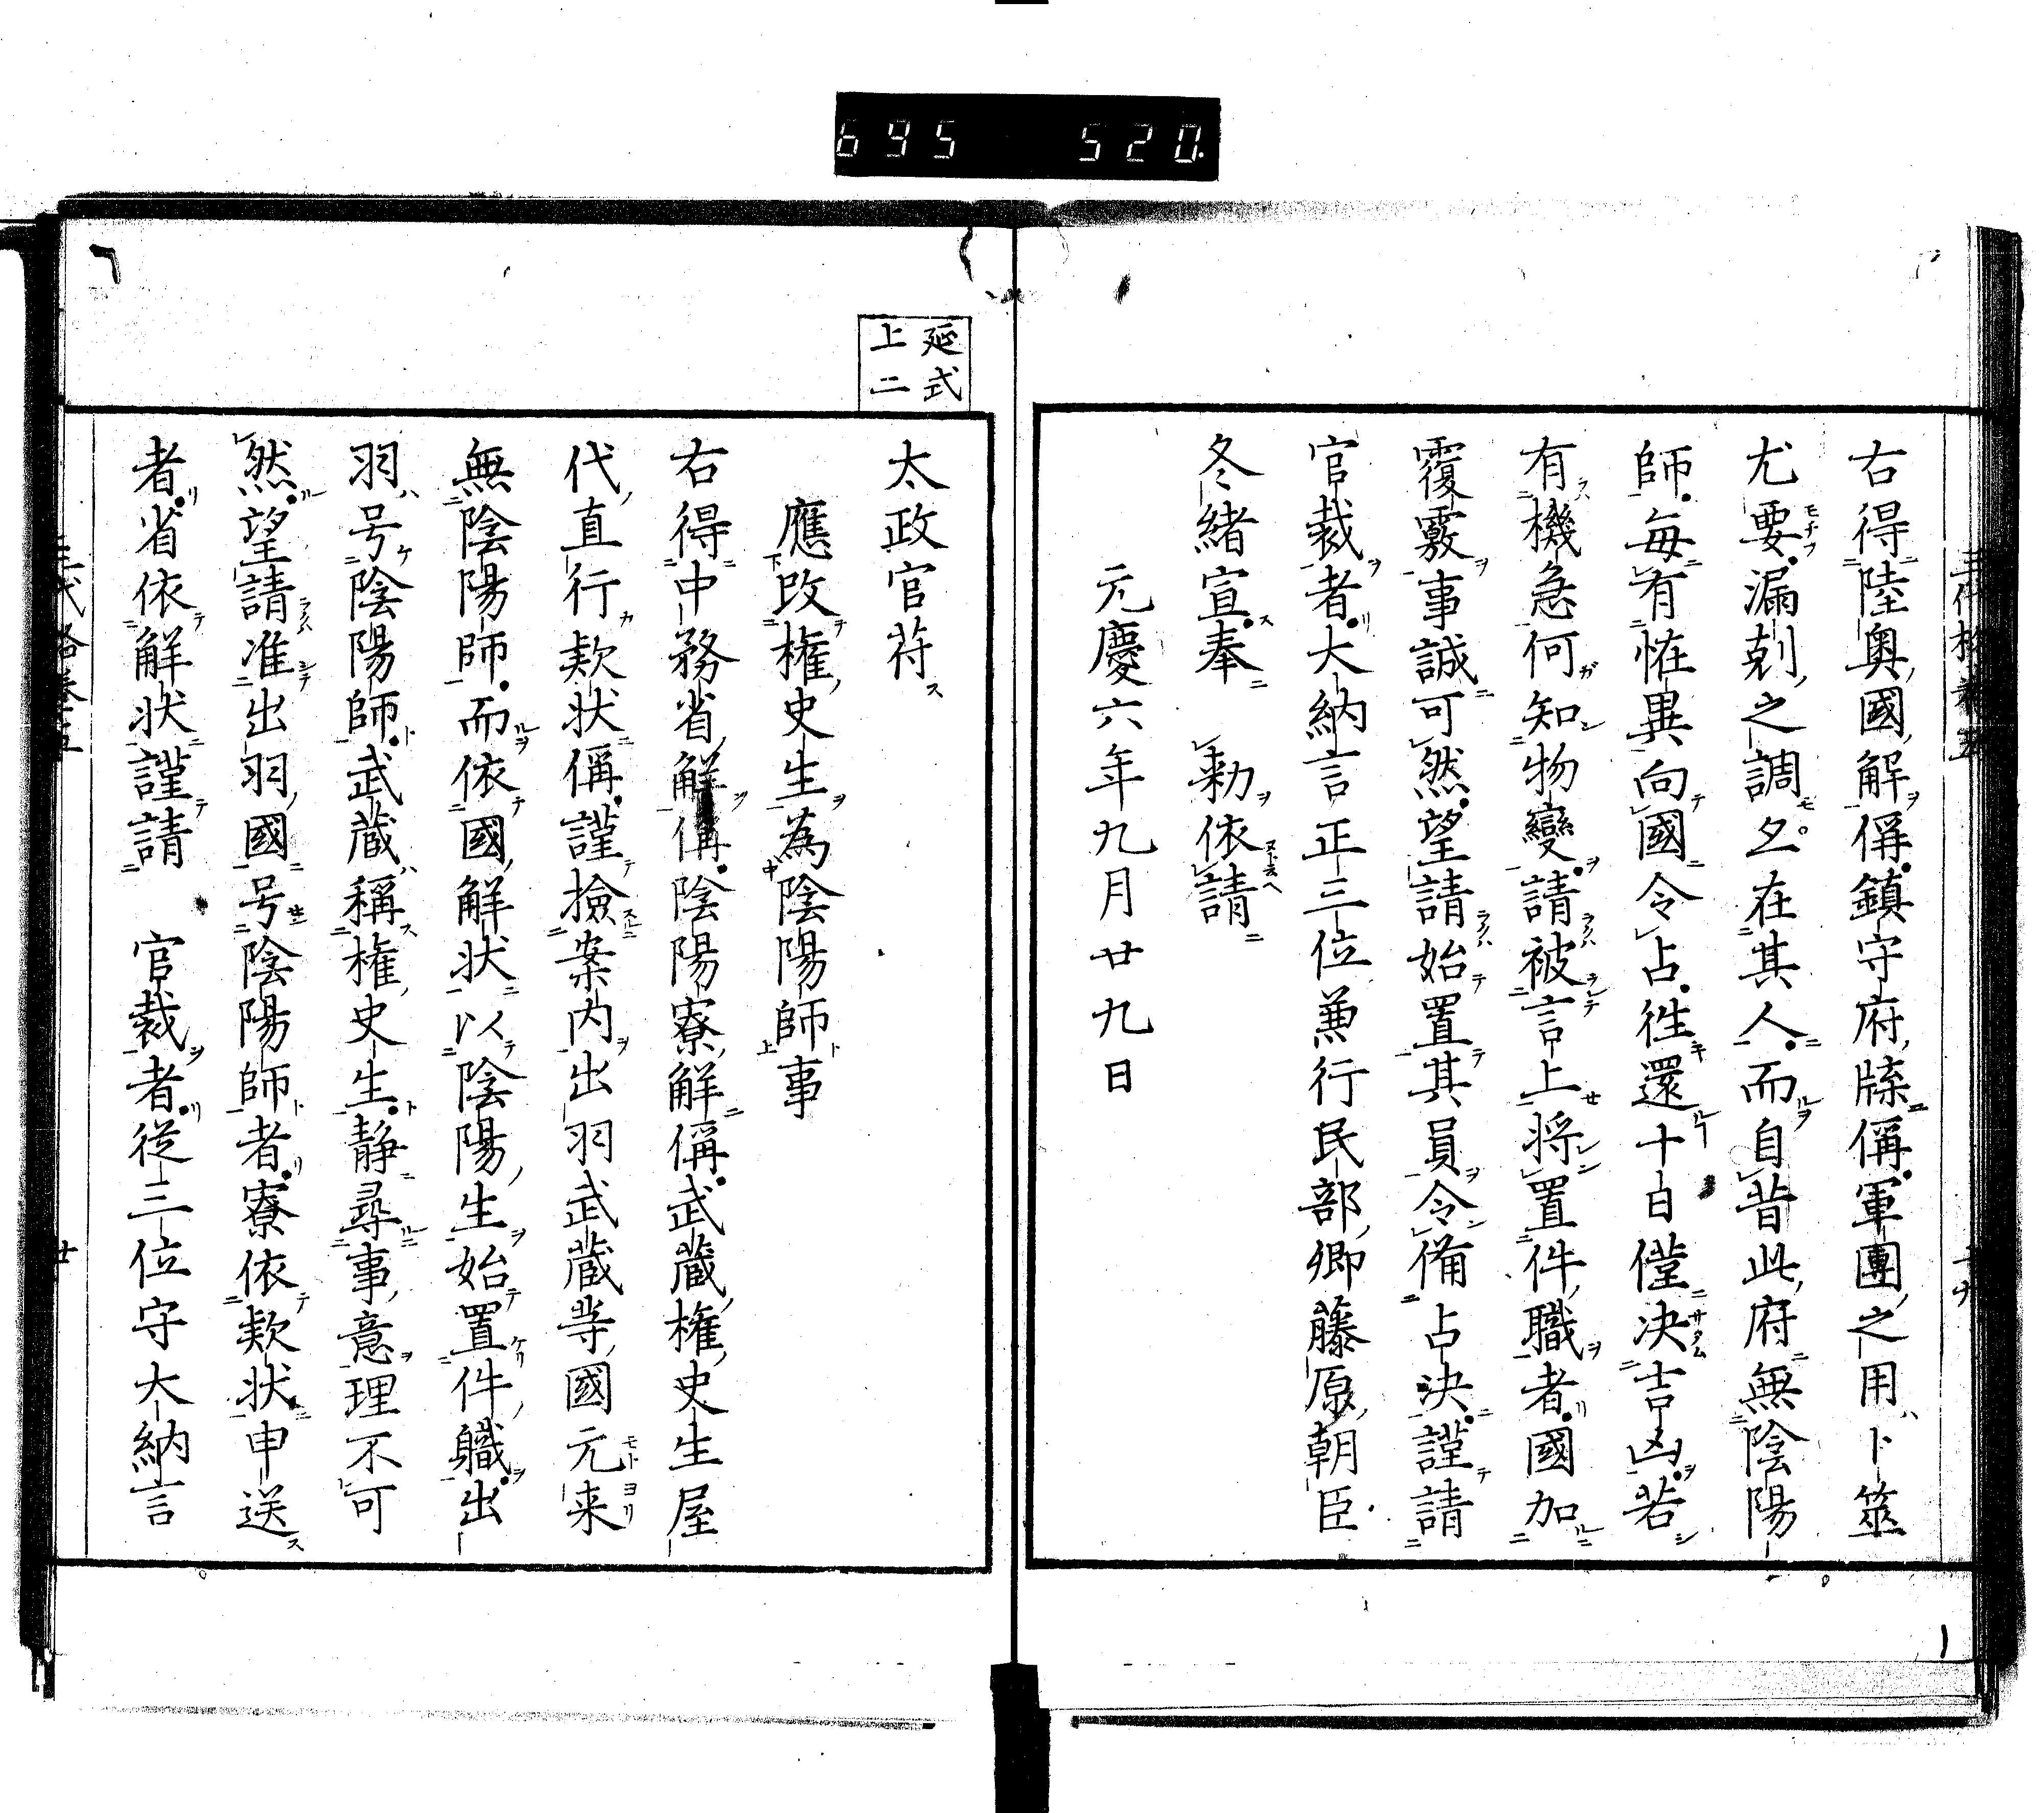 695 520
右得陸奥國解偁鎮守府牒偁軍團之用卜筮
尤要漏剋之調夕在其人而自昔此府無陰陽
師毎有恠異向國令占徃還十日僅決吉凶若
有機急何知物變請被言上将置件職者國加
覆覈事誠可然望請始置其員令備占決謹請
官裁者大納言正三位兼行民部卿藤原朝臣
冬緒宣奉　勅依請
元慶六年九月廿九日
延式
上二
太政官苻
應改權史生為陰陽師事
右得中務省解偁陰陽寮解偁武蔵權史生屋
代直行欵状偁謹撿案内出羽武蔵等國元来
無陰陽師而依國解状以陰陽生始置件職出
羽号陰陽師武蔵稱權史生静尋事意理不可
然望請准出羽國号陰陽師者寮依欵状申送
者省依解状謹請　官裁者従三位守大納言
三代格巻五
廿